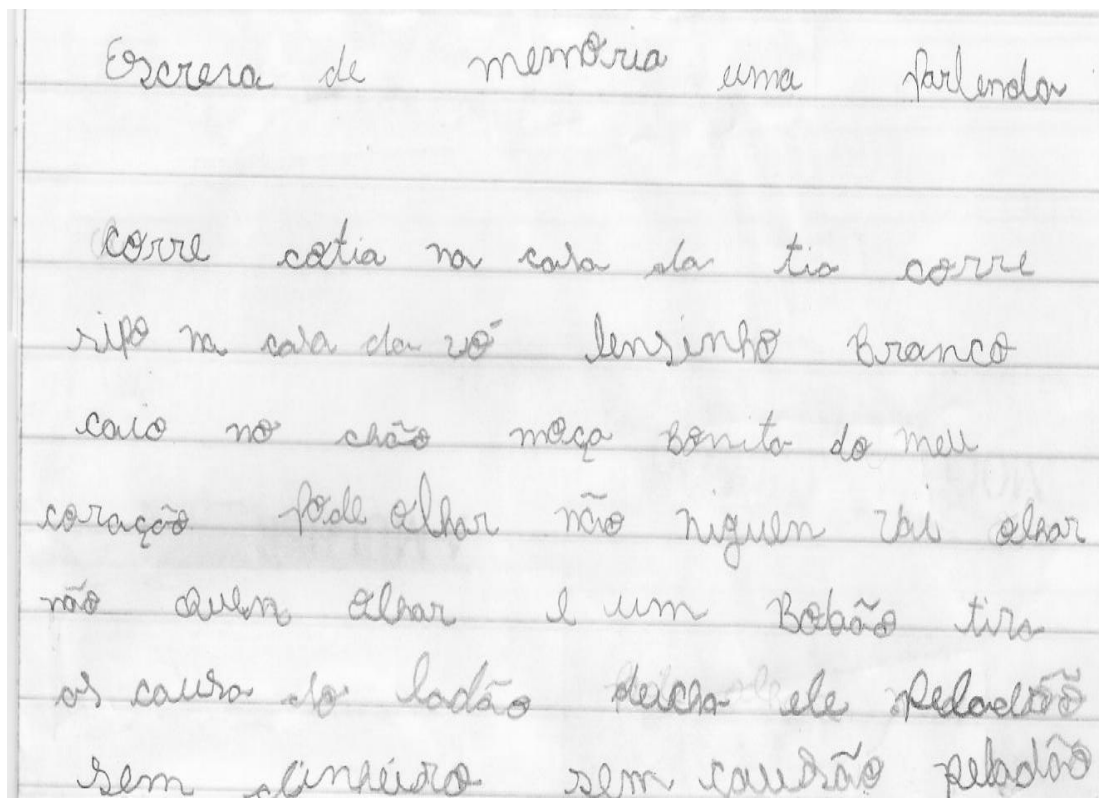 Escreva de memória uma parlenda
corre cotia na casa da tia corre
sipo na casa da vó lensinho Branco
caio no chão moça Bonita do meu
coração pode olhar não niguen vai olhar
não quen olhar e um Bobão tira
as causa do ladão deicha ele peladão
sem dinheiro sem causão peladão